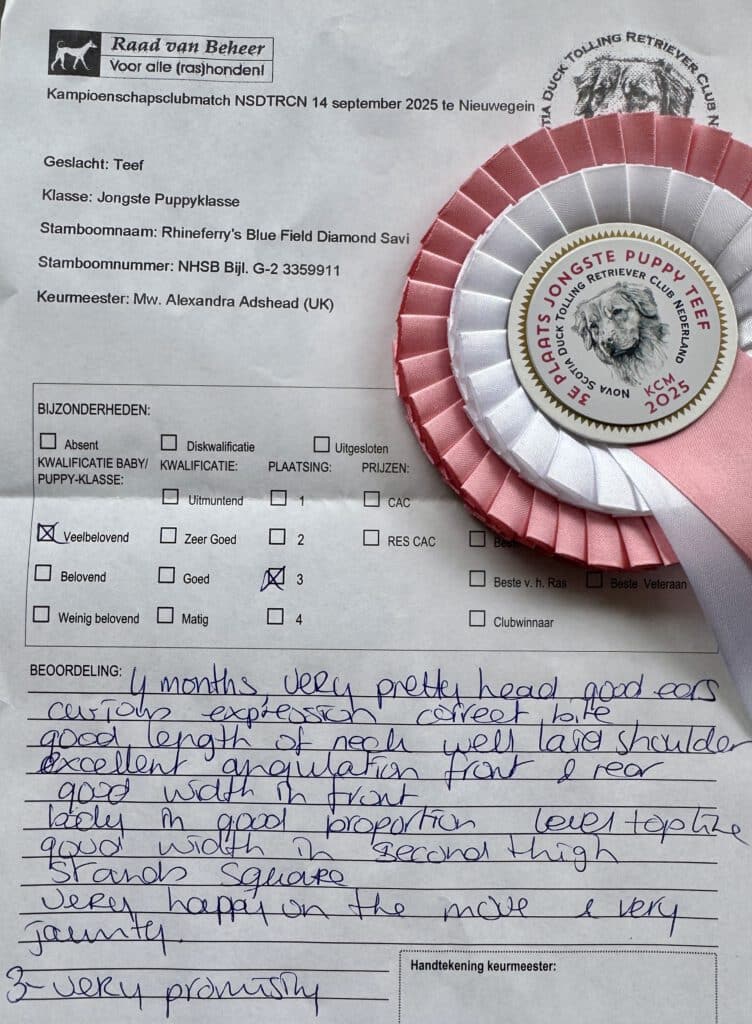 Raad van Beheer
Voor alle (ras)honden!
Kampioenschapsclubmatch NSDTRCN 14 september 2025 te Nieuwegein
TIA DUCK TOLLING RETRIEVER CLUB N
Geslacht: Teef
Klasse: Jongste Puppyklasse
Stamboomnaam: Rhineferry's Blue Field Diamond Savi
Stamboomnummer: NHSB Bijl. G-2 3359911
Keurmeester: Mw. Alexandra Adshead (UK)
3E PLAATS JONGSTE PUPPY TEEF
NOVA SCOTIA DUCK TOLLING RETRIEVER CLUB NEDERLAND
KCM
2025
BIJZONDERHEDEN:
Absent Diskwalificatie Uitgesloten
KWALIFICATIE BABY/ KWALIFICATIE: PLAATSING: PRIJZEN:
PUPPY-KLASSE:
Uitmuntend 1 CAC
Veelbelovend Zeer Goed 2 RES CAC
Belovend Goed 3 Beste v. h. Ras Beste Veteraan
Weinig belovend Matig 4 Clubwinnaar
BEOORDELING: 4 months, very pretty head good ears
curious expression correct bite
good length of neck well laid shoulder
excellent angulation front & rear
good width in front
body in good proportion level topline
good width in second thigh
Stands square
very happy on the move & very
jaunty.
3 - very promising
Handtekening keurmeester: